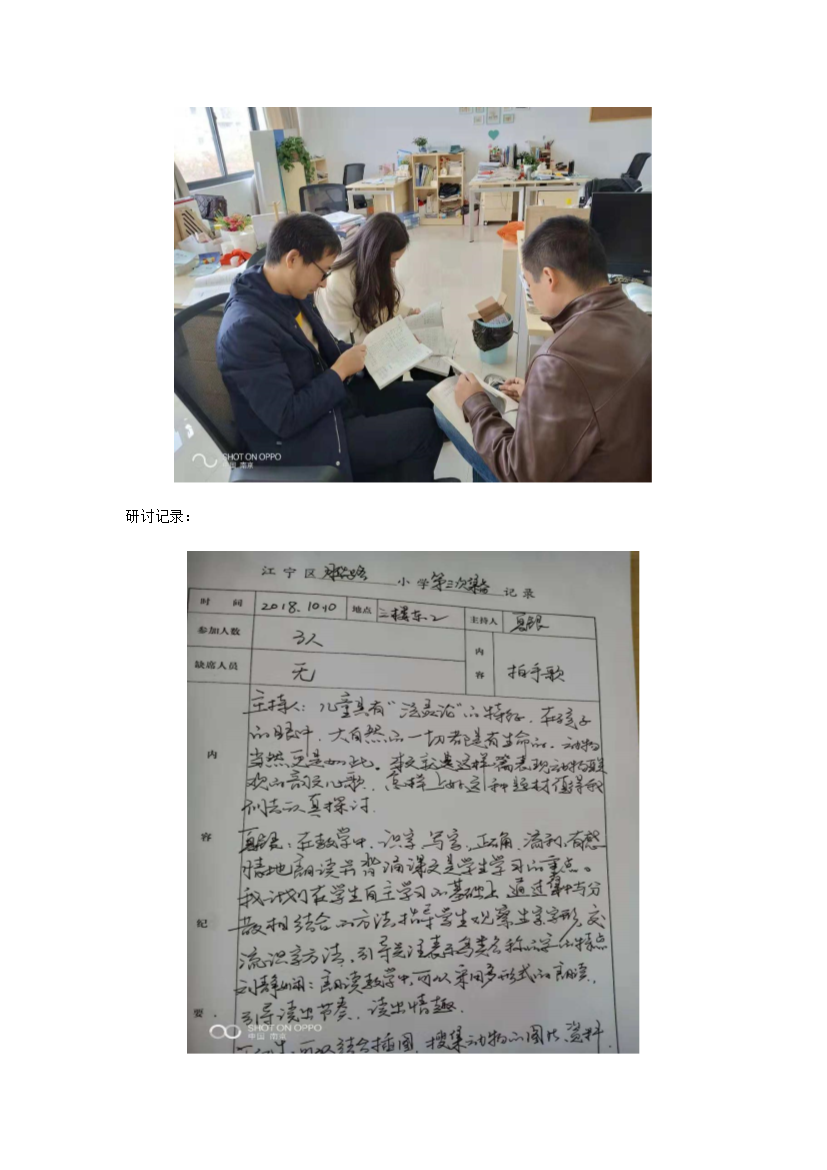 SHOT ON OPPO
中国 南京
研讨记录：
江宁区 小学第三次集备记录
时间 2018.10.10 地点 三楼东2 主持人 夏银
参加人数 3人 内容 拍手歌
缺席人员 无
内容纪要
主持人：儿童具有“泛灵论”的特征，在孩子
的眼中，大自然的一切都是有生命的，动物
当然更是如此，本文就是这样一篇表现动物联
欢的韵文儿歌，怎样上好这种题材值得我
们去认真探讨.
夏银：在教学中，识字、写字，正确、流利、有感
情地朗读并背诵课文是学生学习的重点。
我计划在学生自主学习的基础上，通过集中与分
散相结合的方法，指导学生观察生字字形，交
流识字方法，引导关注表示鸟类名称的字的特点
刘静娴：朗读教学中，可以采用多形式的朗读，
引导读出节奏，读出情趣.
可以结合插图，搜集动物的图片、资料
SHOT ON OPPO
中国 南京